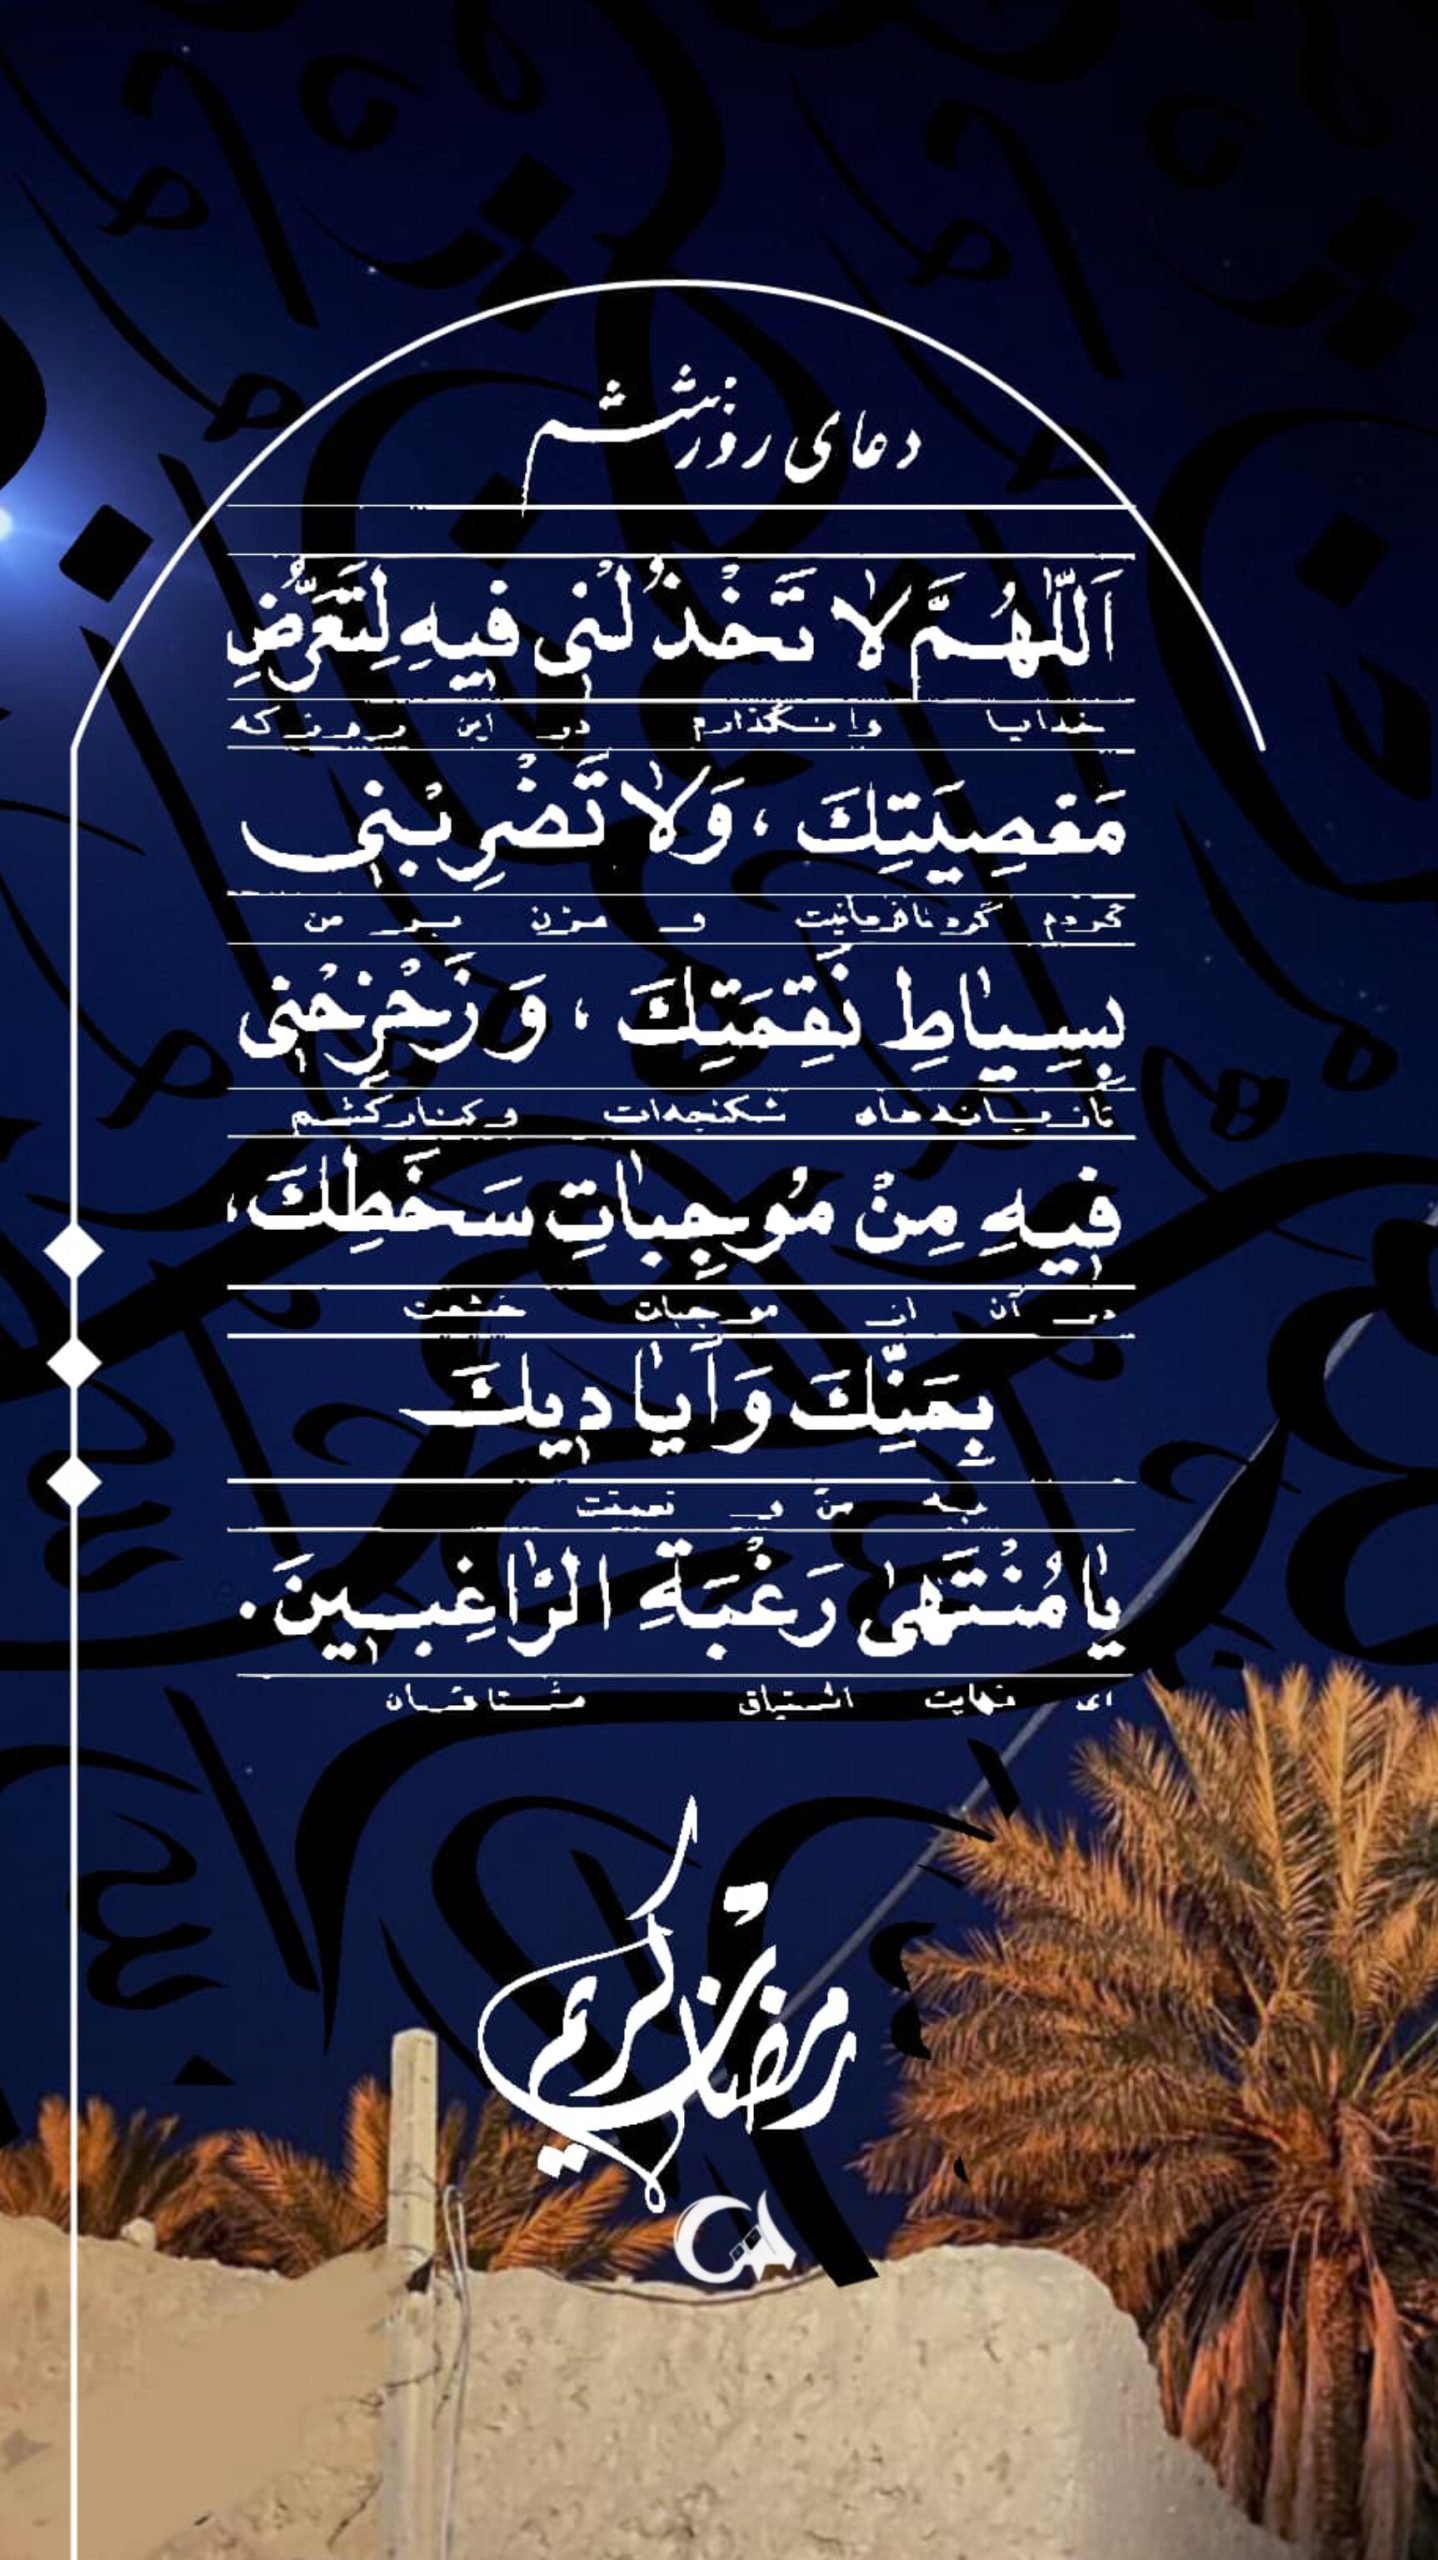 دعای روز ششم
اَللّٰهُمَّ لاٰ تَخْذُلْنی فیهِ لِتَعَرُّضِ
خدایا وانگذارم در این روز که
مَعْصِیَتِكَ ، وَلاٰ تَضْرِبْنی
گردم گرد نافرمانیت و مزن بر من
بِسِیٰاطِ نَقِمَتِكَ ، وَ زَحْزِحْنی
تازیانه‌های شکنجه‌ات و کنار کشم
فیهِ مِنْ مُوجِبٰاتِ سَخَطِكَ،
در آن از موجبات خشمت
بِمَنِّكَ وَاَیٰا دیكَ
به منّ و نعمتت
یٰا مُنْتَهیٰ رَغْبَةِ الرّٰاغِبینَ.
ای نهایت اشتیاق مشتاقان
رمضان کریم